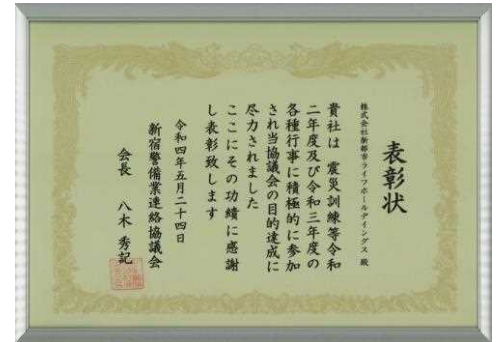 表彰状
株式会社新都市ライフホールディングス 殿
貴社は 震災訓練等令和
二年度及び令和三年度の
各種行事に積極的に参加
され当協議会の目的達成に
尽力されました
ここにその功績に感謝
し表彰致します
令和四年五月二十四日
新宿警備業連絡協議会
会長 八木 秀記